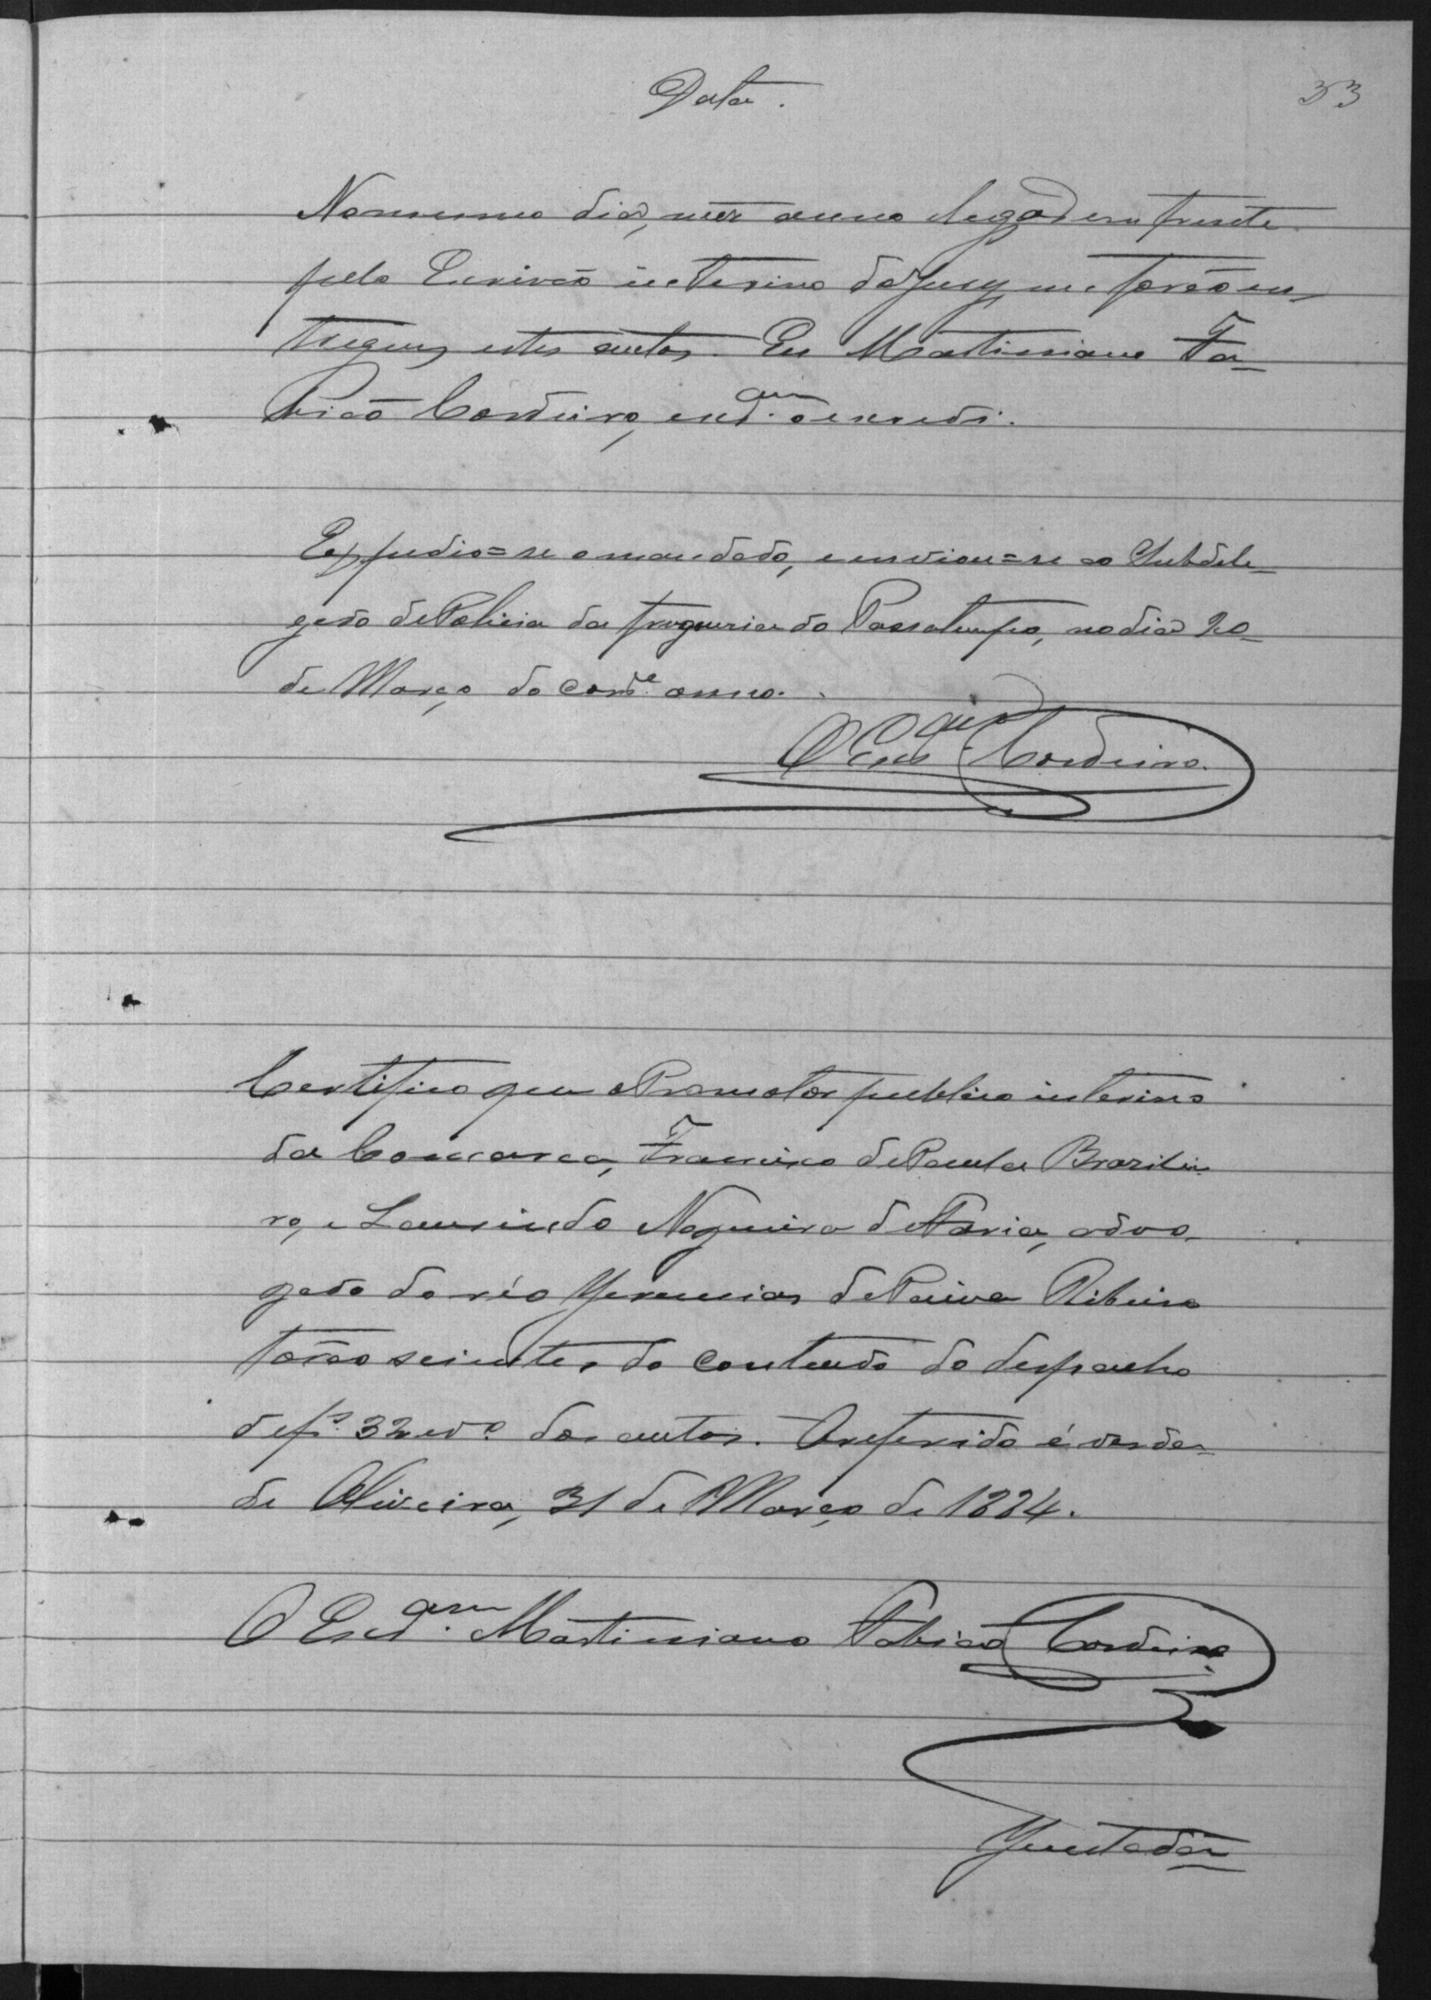 Data.
33
No mesmo dia, mez anno lugar em frente
pelo Escrivão interino do Jury me forão en-
tregues estes autos. Eu Martiniano Fa-
bião Cordeiro, escr.am o escrevi.
Expedio=se o mandado, e enviou=se ao Subdele-
gado de Policia da freguesia do Passatempo, no dia 20
de Março do corr.e anno.
O Escr.am Cordeiro.
Certifico que o Promotor publico interino
da Comarca, Francisco de Paula Brazilei-
ro, e Laurindo Nogueira de Faria, advo-
gado do réo Jeremias de Paiva Ribeiro
forão scientes do conteudo do despacho
de fs. 32 e v.o dos autos. O referido é verda-
de Oliveira, 31 de Março de 1884.
O Escr.am Martiniano Fabião Cordeiro
Juntada